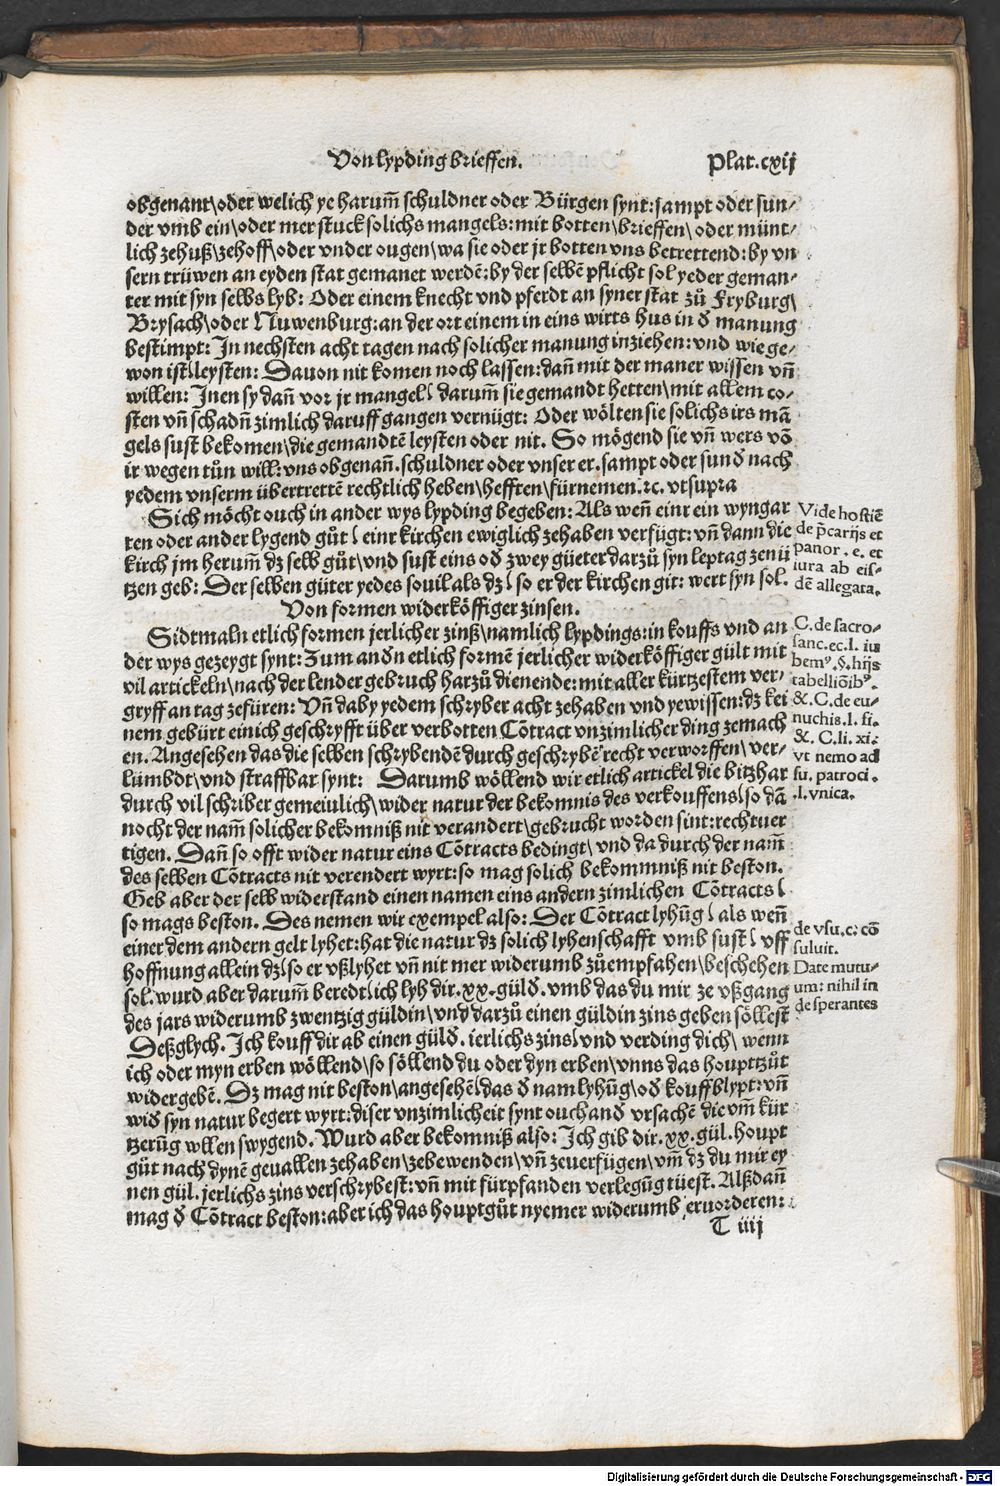 Von lypding brieffen.
Plat. cxij
obgenant\oder welich ye harum̄ schuldner oder Bürgen synt: sampt oder sun⸗
der vmb ein\oder mer stuck solichs mangels: mit botten\brieffen\oder münt⸗
lich zehuß\zehoff\oder vnder ougen\wa sie oder jr botten vns betrettend: by vn
sern trüwen an eyden stat gemanet werdē: by der selbē pflicht sol yeder geman⸗
ter mit syn selbs lyb: Oder einem knecht vnd pferdt an syner stat zů Fryburg\
Brysach\oder Nuwenburg: an der ort einem in eins wirts hus in đ manung
bestimpt: In nechsten acht tagen nach solicher manung inziehen: vnd wie ge⸗
won ist\leysten: Dauon nit komen noch lassen: dañ mit der maner wissen vñ
willen: Inen sy dañ vor jr mangel\darum̄ sie gemandt hetten\mit allem co⸗
sten vñ schadñ zimlich daruff gangen vernügt: Oder wölten sie solichs irs mā
gels sust bekomen\die gemandtē leysten oder nit. So mögend sie vñ wers vō
ir wegen tůn will: vns obgenañ. schuldner oder vnser er. sampt oder sunđ nach
yedem vnserm übertrettē rechtlich heben\hefften\fürnemen. ꝛc. vtsupra
Sich möcht ouch in ander wys lypding begeben: Als weñ einr ein wyngar
ten oder ander lygend gůt\einr kirchen ewiglich zehaben verfügt: vñ dann die
kirch jm herum̄ dz selb gůt\vnd sust eins ođ zwey güeter darzů syn leptag ze nü
tzen geb: Der selben güter yedes souil als dz\so er der kirchen git: wert syn sol.
Vide hostiē
de p̄carijs et
panor. e. et
iura ab eis⸗
dē allegata.
Von formen widerköffiger zinsen.
Sidtmaln etlich formen jerlicher zinß\namlich lypdings: in kouffs vnd an
der wys gezeygt synt: Zum anđn etlich formē jerlicher widerköffiger gült mit
vil artickeln\nach der lender gebruch harzů dienende: mit aller kürtzestem ver⸗
gryff an tag zefüren: Vñ daby yedem schryber acht zehaben vnd yewissen: dz kei
nem gebürt einich geschryfft über verbotten Cōtract vnzimlicher ding zemach
en. Angesehen das die selben schrybendē durch geschrybē recht verworffen\ver⸗
lümbdt\vnd straffbar synt: Darumb wöllend wir etlich artickel die bitzhar
durch vil schriber gemeiulich\wider natur der bekomnis des verkouffens\so dā
nocht der nam̄ solicher bekomniß nit verandert\gebrucht worden sint: rechtuer
tigen. Dañ so offt wider natur eins Cōtracts bedingt\vnd da durch der nam̄
des selben Cōtracts nit verendert wyrt: so mag solich bekommniß nit beston.
Geb aber der selb widerstand einen namen eins andern zimlichen Cōtracts\
so mags beston. Des nemen wir exempel also: Der Cōtract lyhūg\als weñ
einer dem andern gelt lyhet: hat die natur dz solich lyhenschafft vmb sust\vff
hoffnung allein dz\so er vßlyhet vñ nit mer widerumb zůempfahen\beschehen
sol. wurd aber darum̄ beredt\ich lyh dir .xx. gülđ. vmb das du mir ze vßgang
des jars widerumb zwentzig güldin\vnd darzů einen güldin zins geben söllest
Deßglych. Ich kouff dir ab einen gülđ. ierlichs zins\vnd verding dich\wenn
ich oder myn erben wöllend\so söllend du oder dyn erben\vnns das houpttzůt
widergebē. Dz mag nit beston\angesehē\das đ nam lyhūg\ođ kouff blypt: vñ
wiđ syn natur begert wyrt: diser vnzimlicheit synt ouch anđ vrsachē die vm̄ kür
tzerūg wllen swygend. Wurd aber bekomniß also: Ich gib dir .xx. gül. houpt
gůt nach dynē geuallen zehaben\zebewenden\vñ zeuerfügen\vm̄ dz du mir ey
nen gül. jerlichs zins verschrybest: vñ mit fürpfanden verlegūg tüest. Alßdañ
mag đ Cōtract beston: aber ich das houptgůt nyemer widerumb eruorderen:
C. de sacro⸗
sanc. ec. l. iu
bem⁹. §. hijs
tabelliōib⁹.
&. C. de eu⸗
nuchis. l. fi.
&. C. li. xi.
vt nemo ad
su. patroci.
.l. vnica.
de vsu. c. cō
suluit.
Date mutu⸗
um: nihil in
de sperantes
T iiij
Digitalisierung gefördert durch die Deutsche Forschungsgemeinschaft - DFG